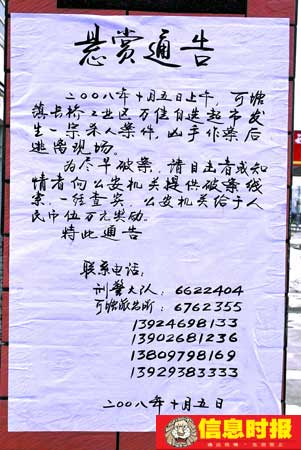 悬赏通告
二00八年十月五日上午，可塘
镇长桥工业区万佳自选超市发
生一宗杀人案件，凶手作案后
逃离现场。
为尽早破案，请目击者或知
情者向公安机关提供破案线
索，一经查实，公安机关给予人
民币伍万元奖励。
特此通告
联系电话：
刑警大队：6622404
可塘派出所：6762355
13924698133
13902681236
13809798169
13929383333
二00八年十月五日
信息时报